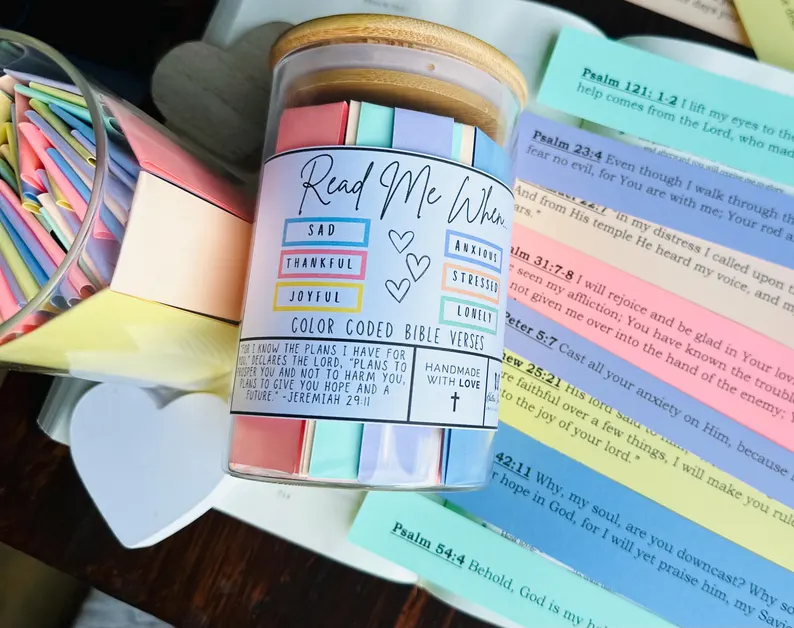 Read Me When...
SAD
THANKFUL
JOYFUL
ANXIOUS
STRESSED
LONELY
COLOR CODED BIBLE VERSES
"FOR I KNOW THE PLANS I HAVE FOR
YOU," DECLARES THE LORD, "PLANS TO
PROSPER YOU AND NOT TO HARM YOU,
PLANS TO GIVE YOU HOPE AND A
FUTURE." -JEREMIAH 29:11
HANDMADE
WITH LOVE
Psalm 121: 1-2 I lift my eyes to the
help comes from the Lord, who mad
Psalm 23:4 Even though I walk through th
fear no evil, for You are with me; Your rod a
22:7 "In my distress I called upon t
And from His temple He heard my voice, and m
ears."
alm 31:7-8 I will rejoice and be glad in Your lovi
seen my affliction; You have known the trouble
not given me over into the hand of the enemy; Y
Peter 5:7 Cast all your anxiety on Him, because
hew 25:21 His lord said to
re faithful over a few things, I will make you rule
to the joy of your lord."
42:11 Why, my soul, are you downcast? Why so
r hope in God, for I will yet praise him, my Savio
Psalm 54:4 Behold, God is my hel